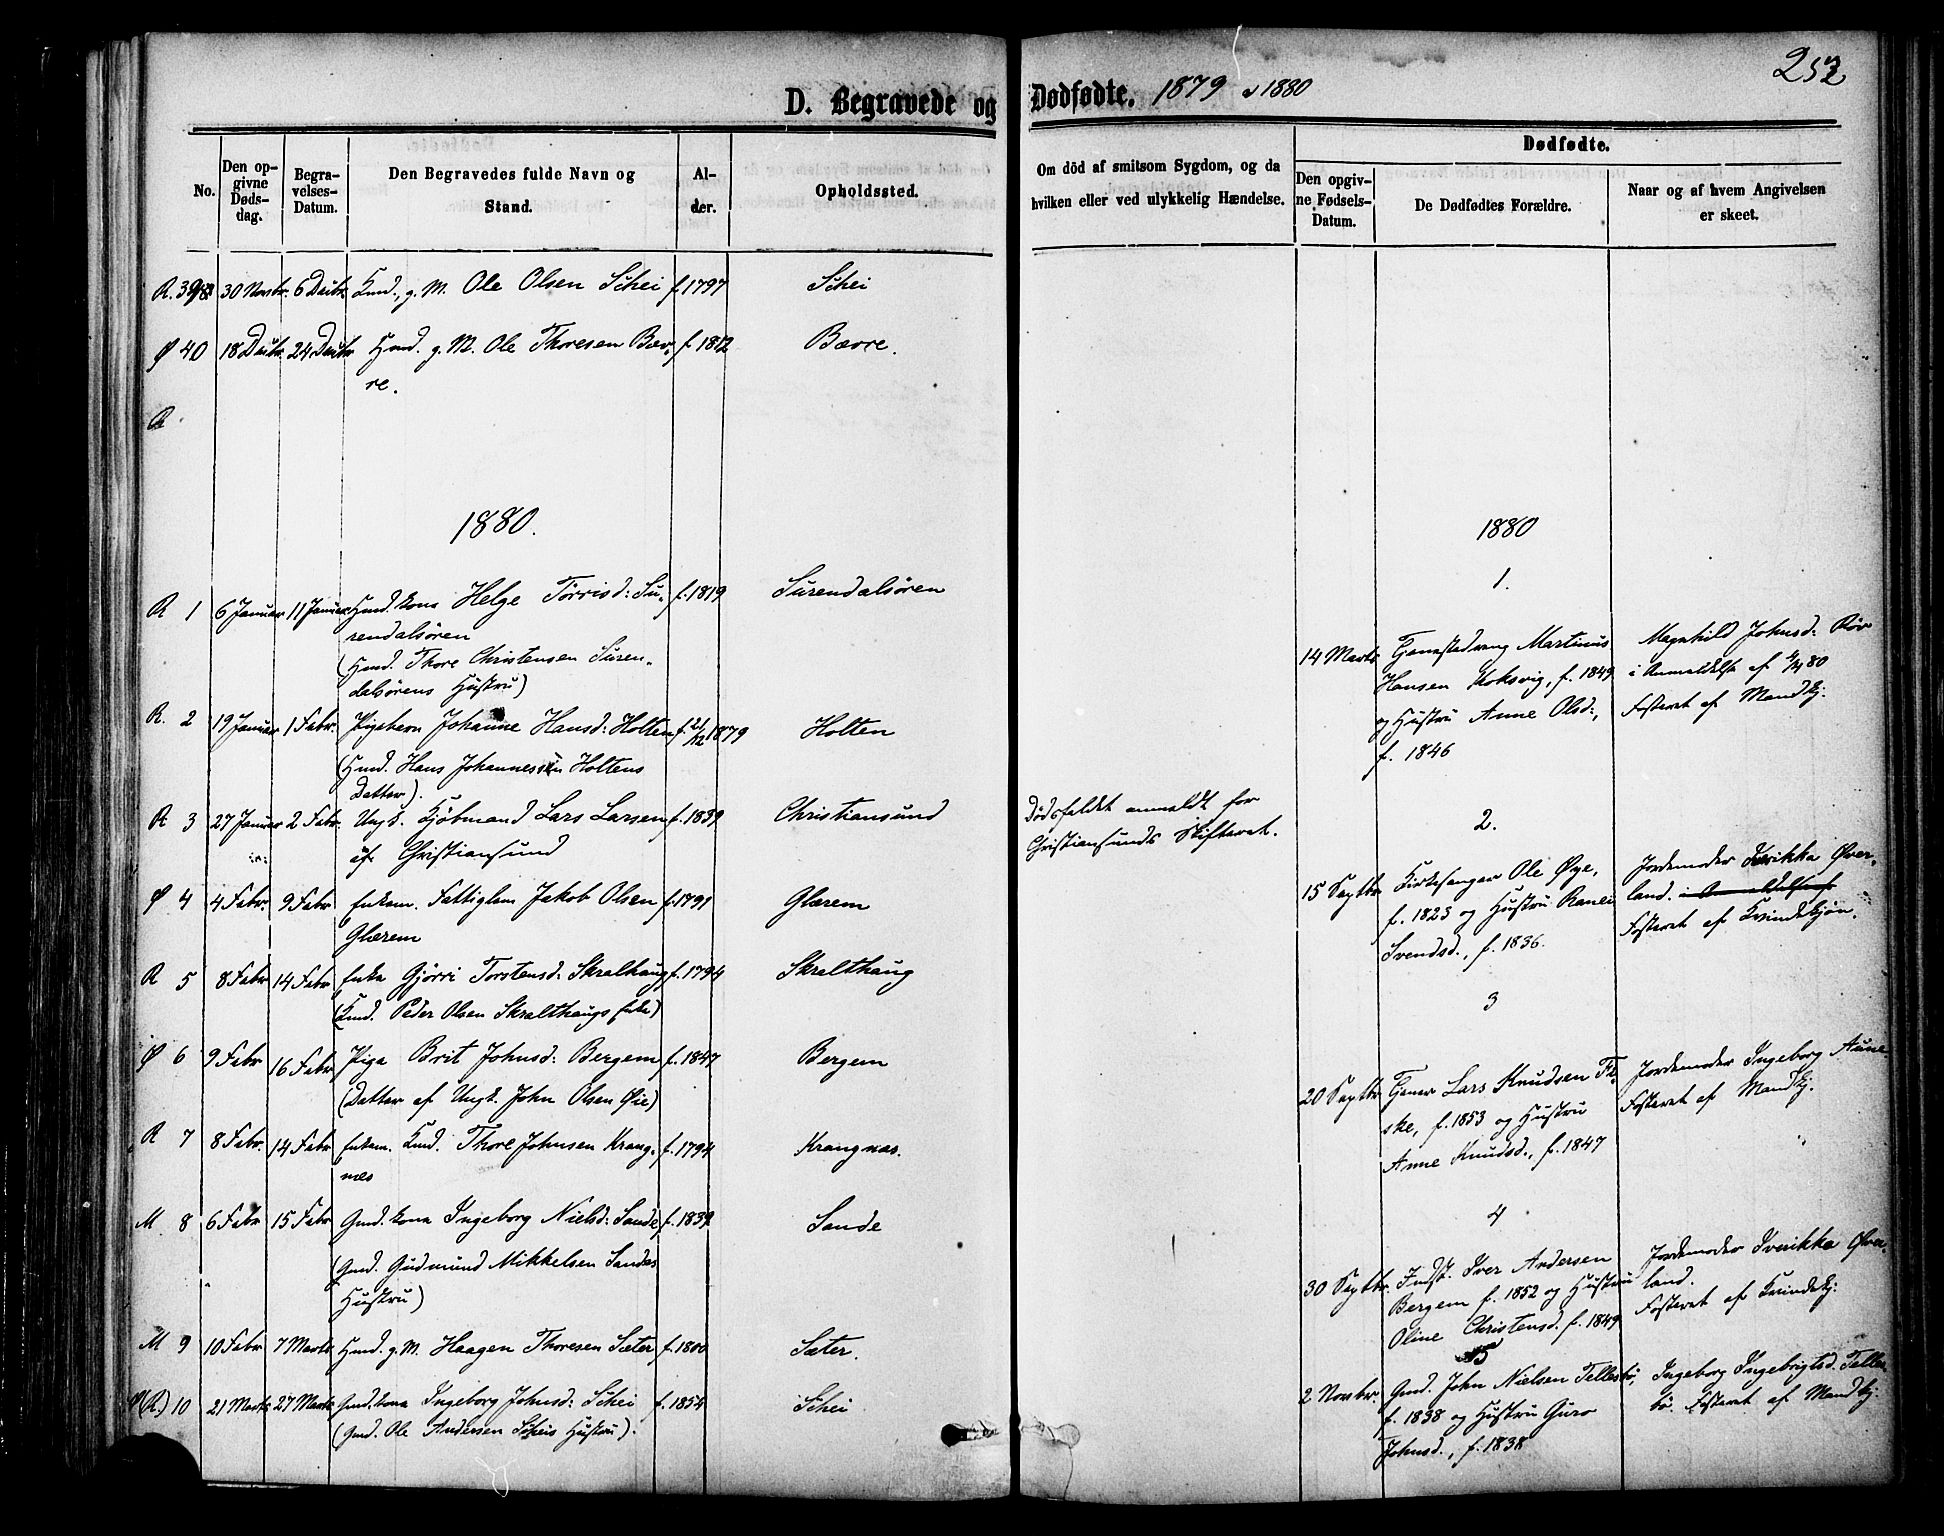 252
D. Begravede og Dødfødte. 1879 & 1880
No.
Den opgivne Dødsdag.
Begravelses-Datum.
Den Begravedes fulde Navn og Stand.
Alder.
Opholdssted.
Om död af smitsom Sygdom, og da hvilken eller ved ulykkelig Hændelse.
Dødfødte.
Den opgivne Fødsels-Datum.
De Dødfødtes Forældre.
Naar og af hvem Angivelsen er skeet.
R. 39 30 Novbr. 6 Decbr. Kmd., g. M. Ole Olsen Schei f. 1797 Schei
Ø 40 18 Decbr. 24 Decbr. Hmd. g. M. Ole Thoresen Bæv- f. 1812 Bævre.
re.
R
1880.
R 1 6 Januar 11 Januar Hmd. kone Helge Törrisd: Su- f. 1819 Surendalsören
rendalsören
(Hmd. Thore Christensen Suren-
dalsörens Hustru)
R. 2 19 Januar 1 Febr. Pigebarn Johanne Hansd: Holten f. 21/12 1879 Holten
(Hmd. Hans Johannessen Holtens
Datter).
R 3 27 Januar 2 Febr. Ungk. Kjöbmand Lars Larsen f. 1839 Christiansund Dödsfaldet anmeldt for
af Christiansund Christiansunds Skifteret.
Ø 4 4 Febr. 9 Febr Enkem. Fattiglem Jakob Olsen f. 1791 Glærem
Glærem
R 5 8 Febr 14 Febr Enke Gjörri Torstensd: Skralthaug f. 1794 Skralthaug
(Kmd. Peder Olsen Skralthaugs Enke)
Ø 6 9 Febr 16 Febr Pige Brit Johnsd: Bergem f. 1847 Bergem
(Datter af Ungk. John Olsen Øie)
R 7 8 Febr. 14 Febr Enkem. Kmd. Thore Johnsen Krang- f. 1794 Krangnæs.
næs
M 8 6 Febr 15 Febr Gmd. kone Ingeborg Nielsd: Sande f. 1839 Sande
(Gmd. Gudmund Mikkelsen Sandes
Hustru)
M 9 10 Febr 7 Marts Hmd. g. M. Haagen Thoresen Sæter f. 1800 Sæter.
(R.) 10 21 Marts 27 Marts Gmd. kone Ingeborg Johnsd: Schei f. 1854 Schei
(Gmd. Ole Andersen Scheis Hustru).
1880
1.
14 Marts Tjenestedreng Martinus Magnhild Johnsd: Röv
Hansen Koksvig, f. 1849 i Anmeldelse af 4/4 80
og Hustru Anne Olsd:, Fosteret af Mandkj:
f. 1846
2.
15 Septbr Kirkesanger Ole Øye, Jordemoder Sverikka Øver-
f. 1823 og Hustru Ranei land. i Anmeldelse af
Svendsd., f. 1836. Fosteret af Kvindekjøn.
3
20 Septbr. Tjener Lars Knudsen Fi- Jordemoder Ingeborg Aune
ske, f. 1853 og Hustru Fosteret af Mandkj:
Anne Knudsd., f. 1847
4
30 Septbr. Indst. Iver Andersen Jordemoder Sverikka Øver-
Bergem f. 1852 og Hustru land.
Oline Christensd. f. 1849 Fosteret af Kvindekj:
5
2 Novbr. Gmd. John Nielsen Tellesbö, Ingeborg Ingebrigtsd. Telles-
f. 1838 og Hustru Guro bö. Fosteret af Mandkj:
Johnsd., f. 1838